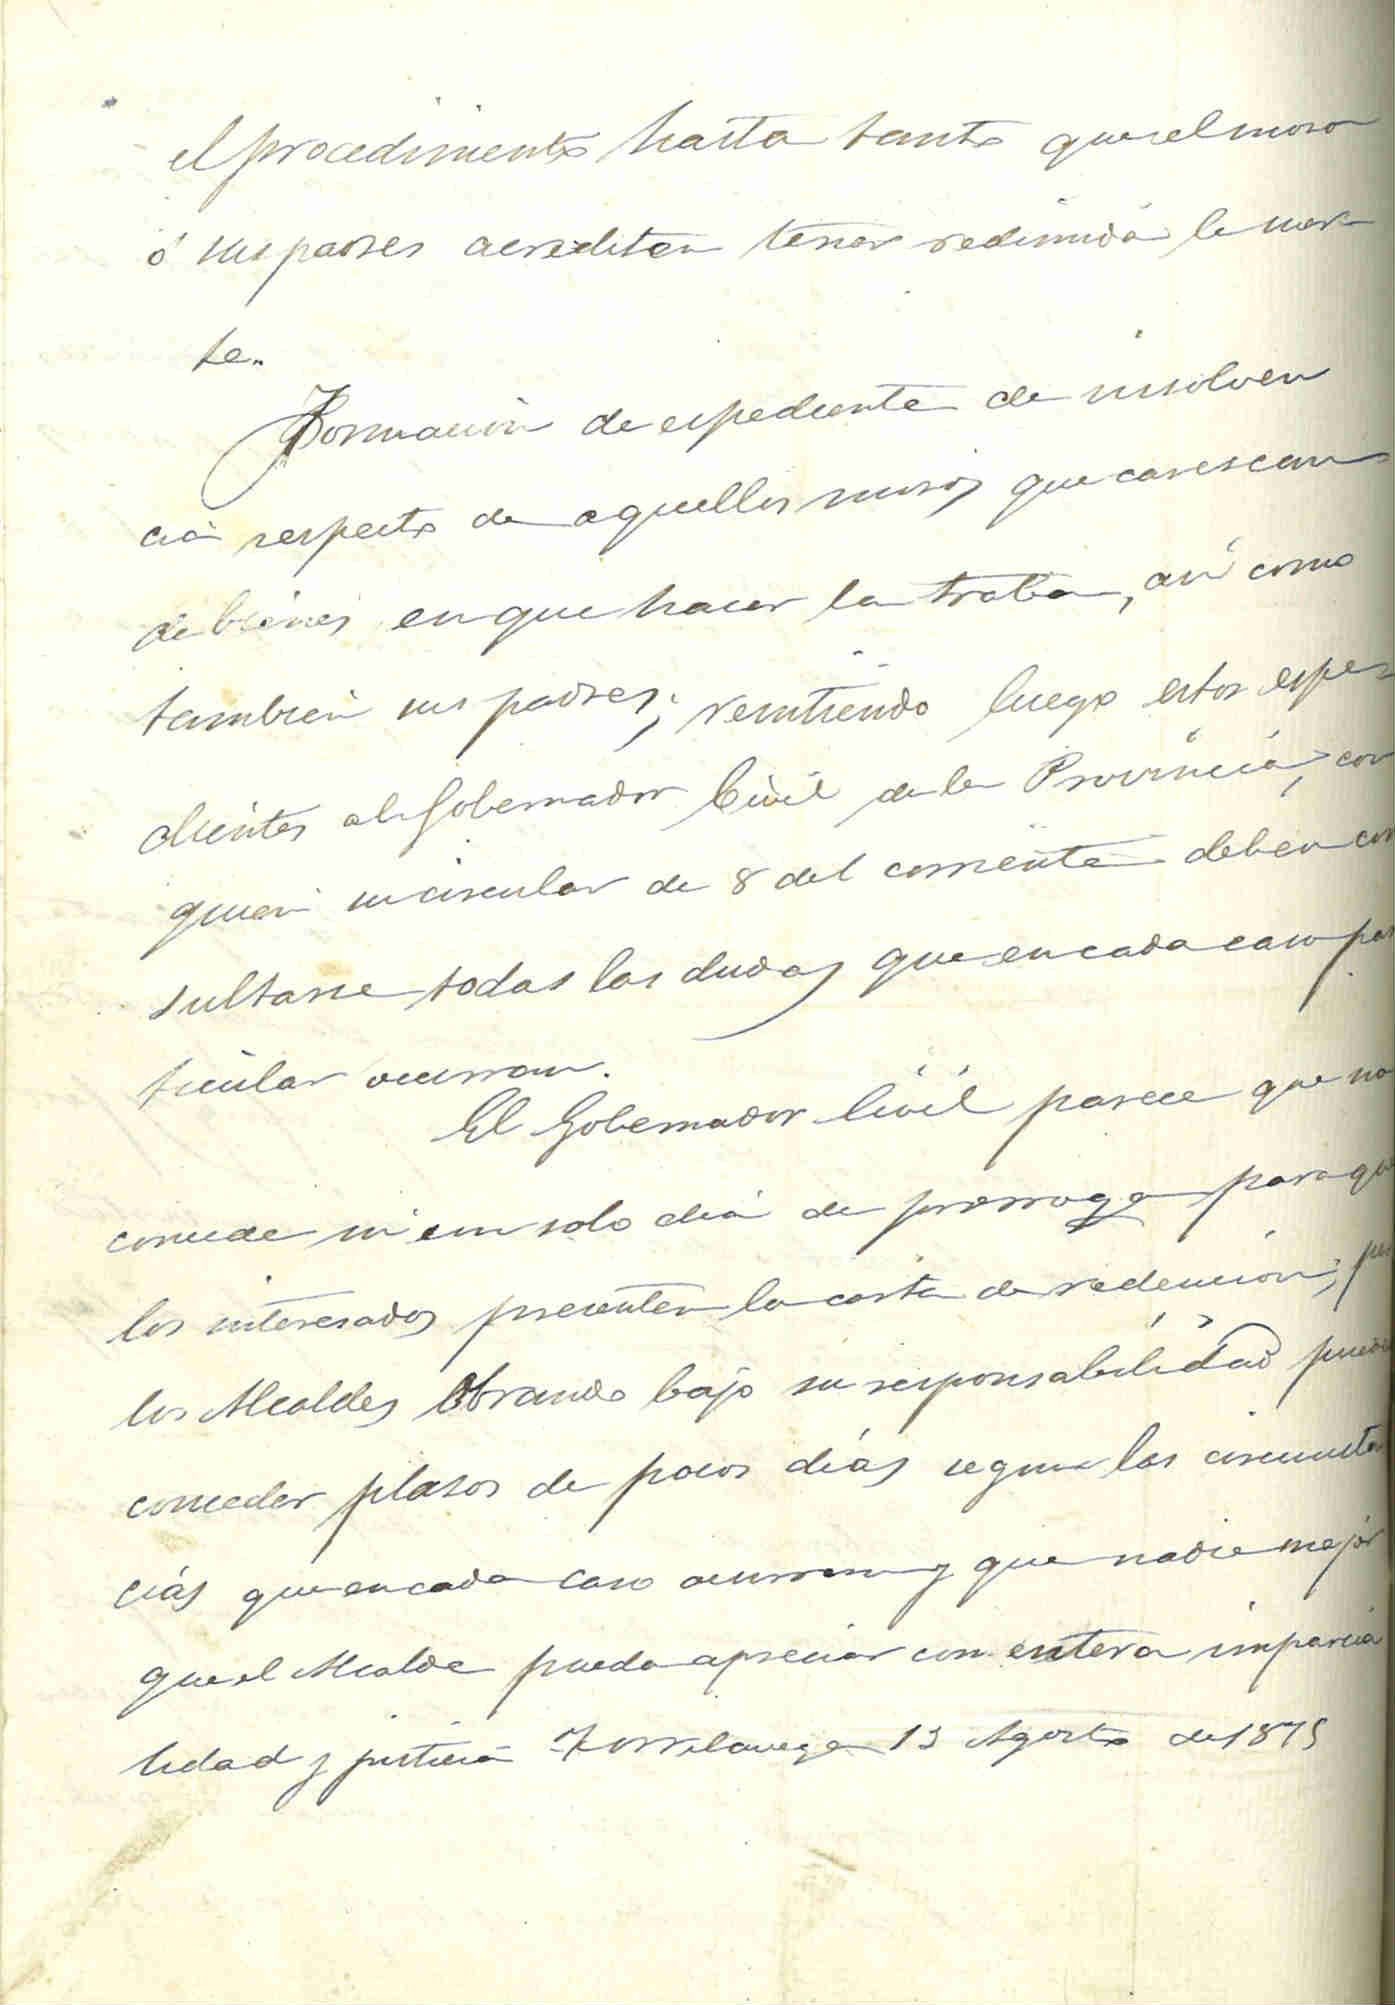 el procedimiento hasta tanto que el moso
ó sus padres acrediten tener redimida la suer
te..
Formacion de espediente de insolven
cia respecto de aquellos mosos que carescan
de bienes en que hacer la traba, asi como
tambien sus padres; remitiendo luego estos espe
dientes al Gobernador Civil de la Provincia, con
quien su circular de 8 del corriente deben con
sultarse todas las dudas que en cada caso par
ticular ocurran.
El Gobernador Civil parece que no
concede ni un solo dia de prorroga para que
los interesados presenten la carta de redencion; per
los Alcaldes obrando bajo su responsabilidad puede
conceder plasos de pocos dias segun las circunsta
cias que en cada caso ocurran y que nadie mejor
que el Alcalde puede apreciar con entera imparcia
lidad y justicia Torrelavega 13 Agosto de 1875